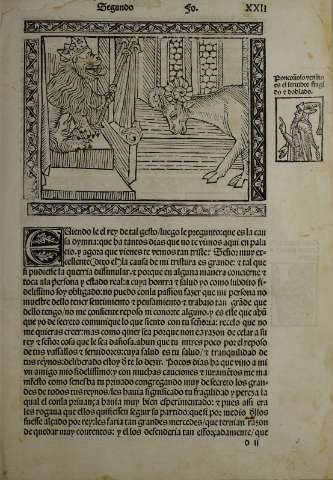 Segundo Fo. XXII
Ponçoñoso veneno
es el servidor fragil
y doblado.
Viendo le el rey de tal gesto, luego le pregunto: que es la cau
sa dymna: que ha tantos dias que no te vimos aqui en pala
cio, y agora que vienes te vemos tan triste? Señor muy ex
celente (dixo el) la causa de mi tristura es grande: e tal que
si pudiesse la querria dissimular. e porque en alguna manera concierne e
toca ala persona y estado real: a cuya honrra e salud yo como subdito fi
delissimo soy obligado: no puedo conla passion fazer que mi persona no
muestre dello tener sentimiento e pensamiento e trabajo tan grāde que
dello tengo, no me consiente reposo ni conorte alguno. y es este que ahū
que yo de secreto comunique lo que siento con tu señoria: recelo que no
me quieras creer: mas como quier sea porque non ea razon de celar a su
rey e señor cosa que le sea dañosa, ahun que tu mires poco por el reposo
de tus vassallos e servidores: cuya salud es tu salud/ e tranquilidad de
tus reynos: deliberado estoy d̄ te lo dezir. Pocos dias ha que vino a mi
vn amigo mio fidelissimo: y con muchas cauciones e iuramētos me ma
nifesto como senesba tu privado congregando muy de secreto los gran
des de todos tus reynos, les hauia significado tu fragilidad y pereza la
qual el conla privança hauia muy bien esperimentado: e pues assi era
les rogaua que ellos quisiessen seguir su partido: que si por medio dellos
fuesse alçado por rey: les faria tan grandes mercedes/ que ternian razon
de quedar muy contentos: y el los defenderia tan esforçadamente/ que
d ii